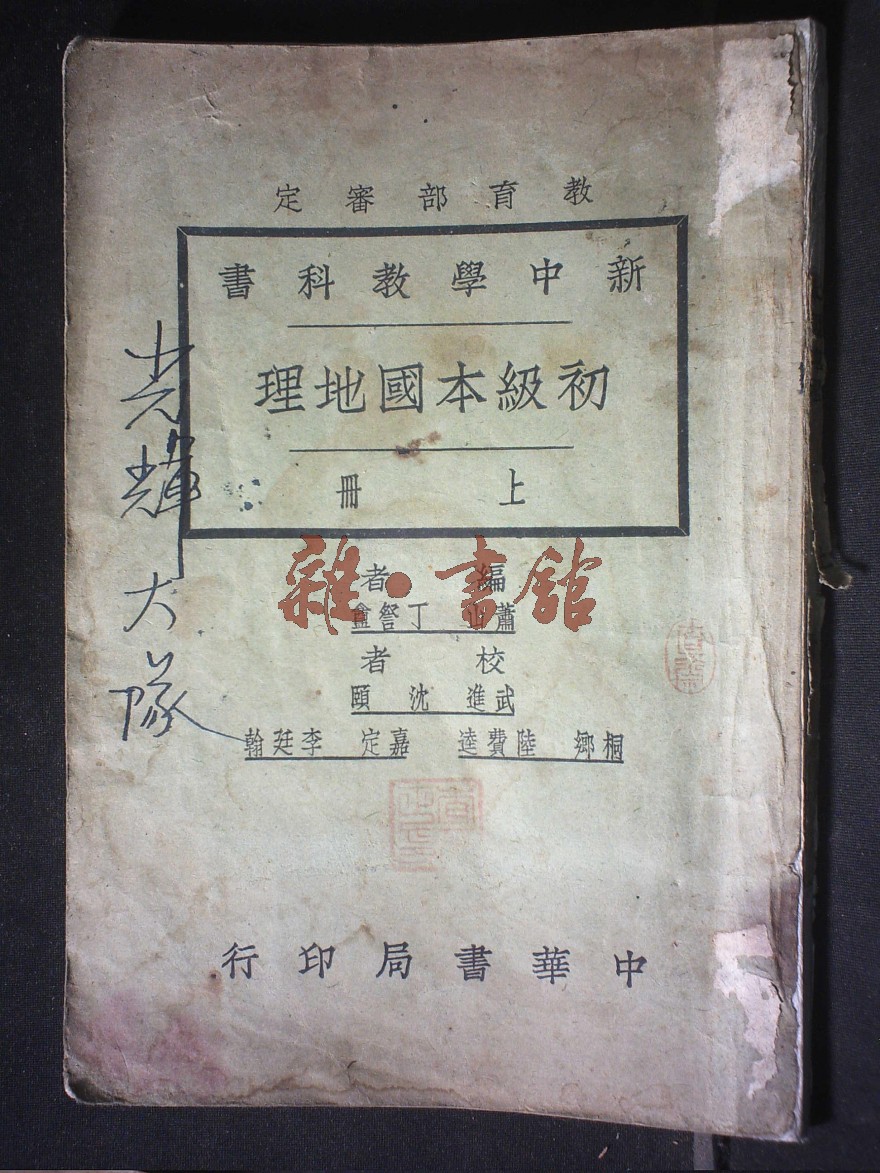 教育部審定
新中學教科書
初級本國地理
上冊
編者
蕭山 丁詧盦
校者
武進 沈頤
桐鄉 陸費逵 嘉定 李廷翰
中華書局印行
光輝大隊
雜·書館